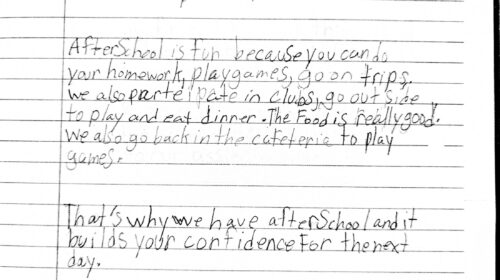 AfterSchool is fun because you can do
your homework, play games, go on trips,
we also parteipate in clubs, go out side
to play and eat dinner. The Food is really good.
We also go back in the cafeteria to play
games.
That's why we have afterSchool and it
builds your confidence For the next
day.